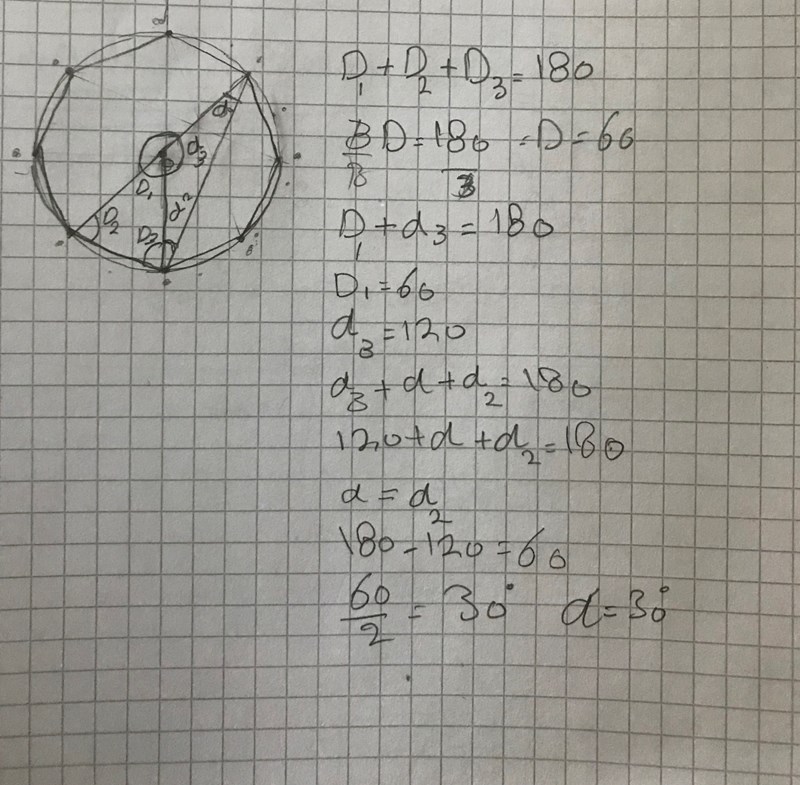 D₁ + D₂ + D₃ = 180
3/3 D = 180/3 = D = 60
D₁ + d₃ = 180
D₁ = 60
d₃ = 120
d₃ + d + d₂ = 180
120 + d + d₂ = 180
d = d₂
180 - 120 = 60
60/2 = 30° d = 30°
d
d₃
D₁
d₂
D₂
D₃